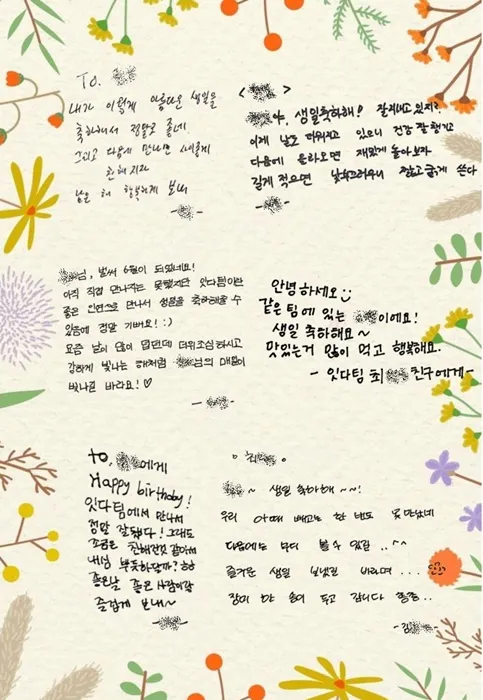 To.
내가 이렇게 아름다운 생일을
축하해서 정말로 좋네
그리고 다음에 만나면 새롭게
친해지자
남은 해 행복하게 보내
< >
야, 생일축하해! 잘지내고 있지?
이제 날도 더워지고 있으니 건강 잘 챙기고
다음에 온라오면 재밌게 놀아보자
길게 적으면 낯부끄러우니 짧고 굵게 쓴다
님, 벌써 6월이 되었네요!
아직 직접 만나지는 못했지만 잇다팀이란
좋은 인연으로 만나서 생일을 축하해줄 수
있음에 정말 기뻐요! :)
요즘 날이 많이 더운데 더위조심하시고
강하게 빛나는 해처럼 님의 매일이
빛나길 바라요! ♡
안녕하세요
같은 팀에 있는 이에요!
생일 축하해요~
맛있는거 많이 먹고 행복해요.
- 잇다팀 최 친구에게 -
to. 에게
Happy birthday!
잇다팀에서 만나서
정말 잘됐다! 그래도
조금은 친해진것 같아서
내심 뿌듯하달까? ㅎㅎ
좋은날 좋은 사람이랑
즐겁게 보내~
~ 생일 축하해 ~~!
우리 아때 빼고는 한 번도 못 만났네
다음에는 부디 볼 수 있길 ..^^
즐거운 생일 보냈길 바라며 ...
장미 한 송이 두고 갑니다 총총 ..
- 김